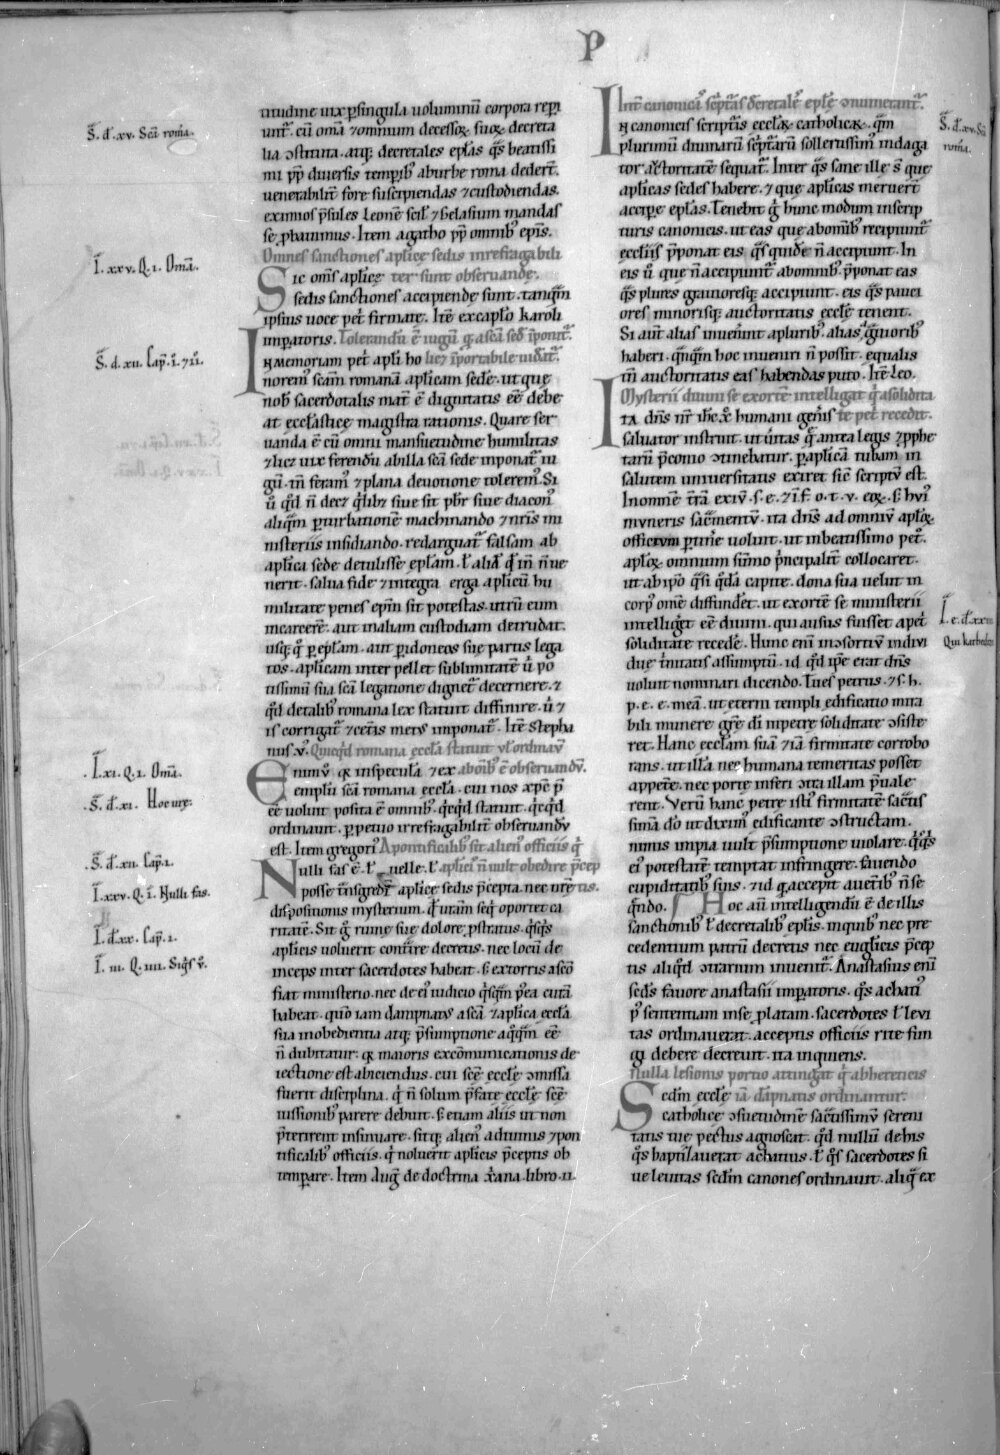 P
titudine uix p̄singula uoluminū corpora repi
unt᷑. cū omā ⁊ominum decessoꝝ suoꝝ decreta
lia ↄstituta. atq; decretales ep̄las q̄s beatissi
mi pp̄ diuersis tempib᷒ aburbe roma dedert̄.
uenerabilit̄ fore suscipiendas ⁊custodiendas.
eximios p̄sules leonē scil᷑ ⁊Gelasium mandas
se ꝓbauimus. Item agatho pp̄ omnib᷒ ep̄is.
Omnes sanctiones aplicę sedis inrefragabili
Sic om̄s aplicę ter sunt obseruandę.
sedis sanctiones accipiendę sunt. tanq̄m
ipsius uoce pet᷑ firmate. Itē excap̄lo karoli
imp̄atoris. Tolerandū ē iugū q̄ ascā sed᷑ īponit᷑.
IN memoriam pet᷑ apl̄i ho licꝫ īportabile uidat᷑.
norem᷒ scām romanā aplicam sedē. ut que
nob᷒ sacerdotalis mat᷑ ē dignitatis eē debe
at ecclāsticę magistra rationis. Quare ser
uanda ē cū omni mansuetudine humilitas
⁊licꝫ uix ferendū abilla scā sede inponat᷑ iu
gū. tn̄ feram᷒ ⁊plana deuotione tolerem᷒. Si
ū q̄d n̄ decꝫ q̄libꝫ siue sit pb̄r siue diacon᷒
aliq̄m ꝑturbationē machinando ⁊nr̄is mi
nisteriis insidiando. redarguat᷑ falsam ab
aplica sede detulisse ep̄lam. ł aliđ q̄ in̄ n̄ue
nerit. salua fide ⁊integra erga aplicū hu
militate penes ep̄m sit potestas. utrū eum
incarcerē. aut inaliam custodiam detrudat.
usq; q̄ ꝑ ep̄lam. aut ꝑidoneos suę partis lega
tos. aplicam inter pellet sublimitatē ū po
tissimū sua scā legatione dignet᷑ decernere. ⁊
q̄d detalib᷒ romana lex statuit diffinire. ū ⁊
is corrigat᷑ ⁊cet̄is met᷒ imponat᷑. Itē Stepha
nus .v. Quicq̄d romana ecclā statuit ut᷑ ordinaū
Enimū q̄ inspeculā ⁊ex abom̄ib᷒ ē obseruandū.
emplū scā romana ecclā. cui nos xp̄c p̄
eē uoluit posita ē omnib᷒ q̄cq̄d statuit. q̄cq̄d
ordinauit. ꝑpetuo irrefragabilit̄ obseruandū
est. Item gregori᷒ A pontificalib᷒ sit alien᷒ officiis q̄
Nulli fas ē. ł uelle. ł aplici n̄ uult obedire p̄cep
posse t̄nsgredi᷑ aplicę sedis p̄cepta. nec nr̄e tis.
dispositionis mysterium. q̄ utam̄ seq̄ oportet ca
ritatē. Sit ḡ ruinę suę dolore ꝓstratus. q̄sq̄s
aplicis uoluerit cont̄ire decretis. nec locū de
inceps inter sacerdotes habeat. s᷑ extorris ascō
fiat ministerio. nec de ei᷒ iudicio q̄sq̄m p̄ea curā
habeat. quō iam dampnat᷒ ascā ⁊aplica ecclā
sua inobedientia atq; p̄sumptione aq̄q̄m eē
n̄ dubitatur. q̄ maioris excōmunicationis de
iectione est abiciendus. cui scē ecclę ↄmissa
fuerit disciplina. q̄ n̄ solum p̄fatę ecclę scē
iussionib᷒ parere debuit. s᷑ etiam aliis ut non
p̄terirent insinuare. sitq; alien᷒ adiuinis ⁊pon
tificalib᷒ officiis. q̄ noluerit aplicis p̄ceptis ob
temp̄are. Item Aug᷑ de doctrina x̄iana. libro .ii.
Int᷑ canonicas sc̄pt̄as decretalē ep̄lę ↄnumerant᷑.
IN canonicis scriptis ecclāꝝ catholicaꝝ. q̄m
plurimū diuinarū sc̄pt̄arū sollertissim᷒ indaga
tor auctoritatē sequat᷑. Inter q̄s sane ille s̄ que
aplicas sedes habere. ⁊ que aplicas meruert̄
accipe ep̄las. Tenebit ḡ hunc modum inscrip
turis canonicis. ut eas que abomib᷒ recipiunt᷑
eccl̄iis p̄ponat eis q̄s quidē n̄ accipiunt. In
eis ū que n̄ accipiunt᷑ abomnib᷒. p̄ponat eas
q̄s plures grauioresq; accipiunt. eis q̄s pauci
ores minorisq; auctoritatis ecclę tenent.
Si aut̄ alias inuenīnt aplurib᷒. alias g̃uiorib᷒
haberi. q̄nq̄m hoc inueniri n̄ possit. equalis
tn̄ auctoritatis eas habendas puto. Itē leo.
Mysterii diuini se exortē intelligat q̄ asolidita
ITa dn̄s nr̄ ih̄c x̄ humani gen̄is te pet᷑ recedit.
saluator instituit. ut ūitas q̄ antea legis ⁊pphe
tarū p̄conio ↄtinebatur. ꝑ aplicā tubam in
salutem uniuersitatis exiret sic̄ scriptū est.
Inomnē tr̄ā exiū .s. e. ⁊i.f. o. t. v. eoꝝ. s᷑ hui᷒
muneris sac̄mentū. ita dn̄s ad omniū aploꝝ
officium ꝑtinē uoluit. ut inbeatissimo pet᷑.
aploꝝ omnium sūmo p̄ncipalit̄ collocaret.
ut abip̄o q̄si q̄dā capite. dona sua uelut in
corp᷒ omē diffundet᷑. ut exortē se ministerii
intelliget᷑ eē diuini. qui ausus fuisset apet᷑
soliditate recedē. Hunc enī incↄsortiū indiui
due t̄nitatis assumptū. id q̄d ip̄e erat dn̄s
uoluit nominari dicendo. Tu es petrus. ⁊ s. h.
p. e. e. meā. ut et̄ni templi edificatio mira
bili munere gr̄ę dī inpetrę soliditate ↄsiste
ret. Hanc ecclam suā ⁊iā firmitate corrobo
rans. ut illā nec humana temeritas posset
appetere. nec portę inferi ↄtra illam p̄uale
rent. Verū hanc petrę isti᷒ firmitatē sac̄tis
simā dō ut dixim᷒ edificante ↄstructam.
nimis impia uult p̄sumptione uiolare. q̄sq̄s
ei᷒ potestatē temptat infringere. fauendo
cupiditatib᷒ suis. ⁊id q̄ accepit auct̄ib᷒ n̄ se
q̄ndo. Hoc aut̄ intelligendū ē de illis
sanctionib᷒ ł decretalib᷒ ep̄lis. inquib᷒ nec pre
cedentium patrū decretis nec eug̃licis p̄cep
tis aliq̄d ↄtrarium inuenit᷑. Anastasius enī
sed̄s fauore anastasii imp̄atoris. q̄s achati᷒
p᷒ sententiam inse ꝓlatam. sacerdotes ł leui
tas ordinauerat. acceptis officiis rite fun
gi debere decreuit. ita inquiens.
Nulla lesionis portio attingat q̄ abhereticis
Sedm̄ ecclę iā dāpnatis ordinantur.
catholicę ↄsuetudinē sac̄tissimū sereni
tatis tuę pectus agnoscat. q̄d nullū de his
q̄s baptizauerat achatius. ł q̄s sacerdotes si
ue leuitas sedm̄ canones ordinauit. aliq̄ ex
S̄. d. xv. Scā romā.
I. xxv. Q. i. Omā.
S̄. d. xii. Cap. i. ⁊ ii.
I. xi. Q. i. Omā.
S̄. d. xi. Hoc uꝛe.
S̄. d. xii. Cap. i.
I. xxv. Q. i. Nulli fas.
I. d. xx. Cap. i.
I. iii. Q. iiii. Siq̄s ū.
S̄. d. xv. Scā
romā.
I. e. d. xxiii
Qui kathedrā